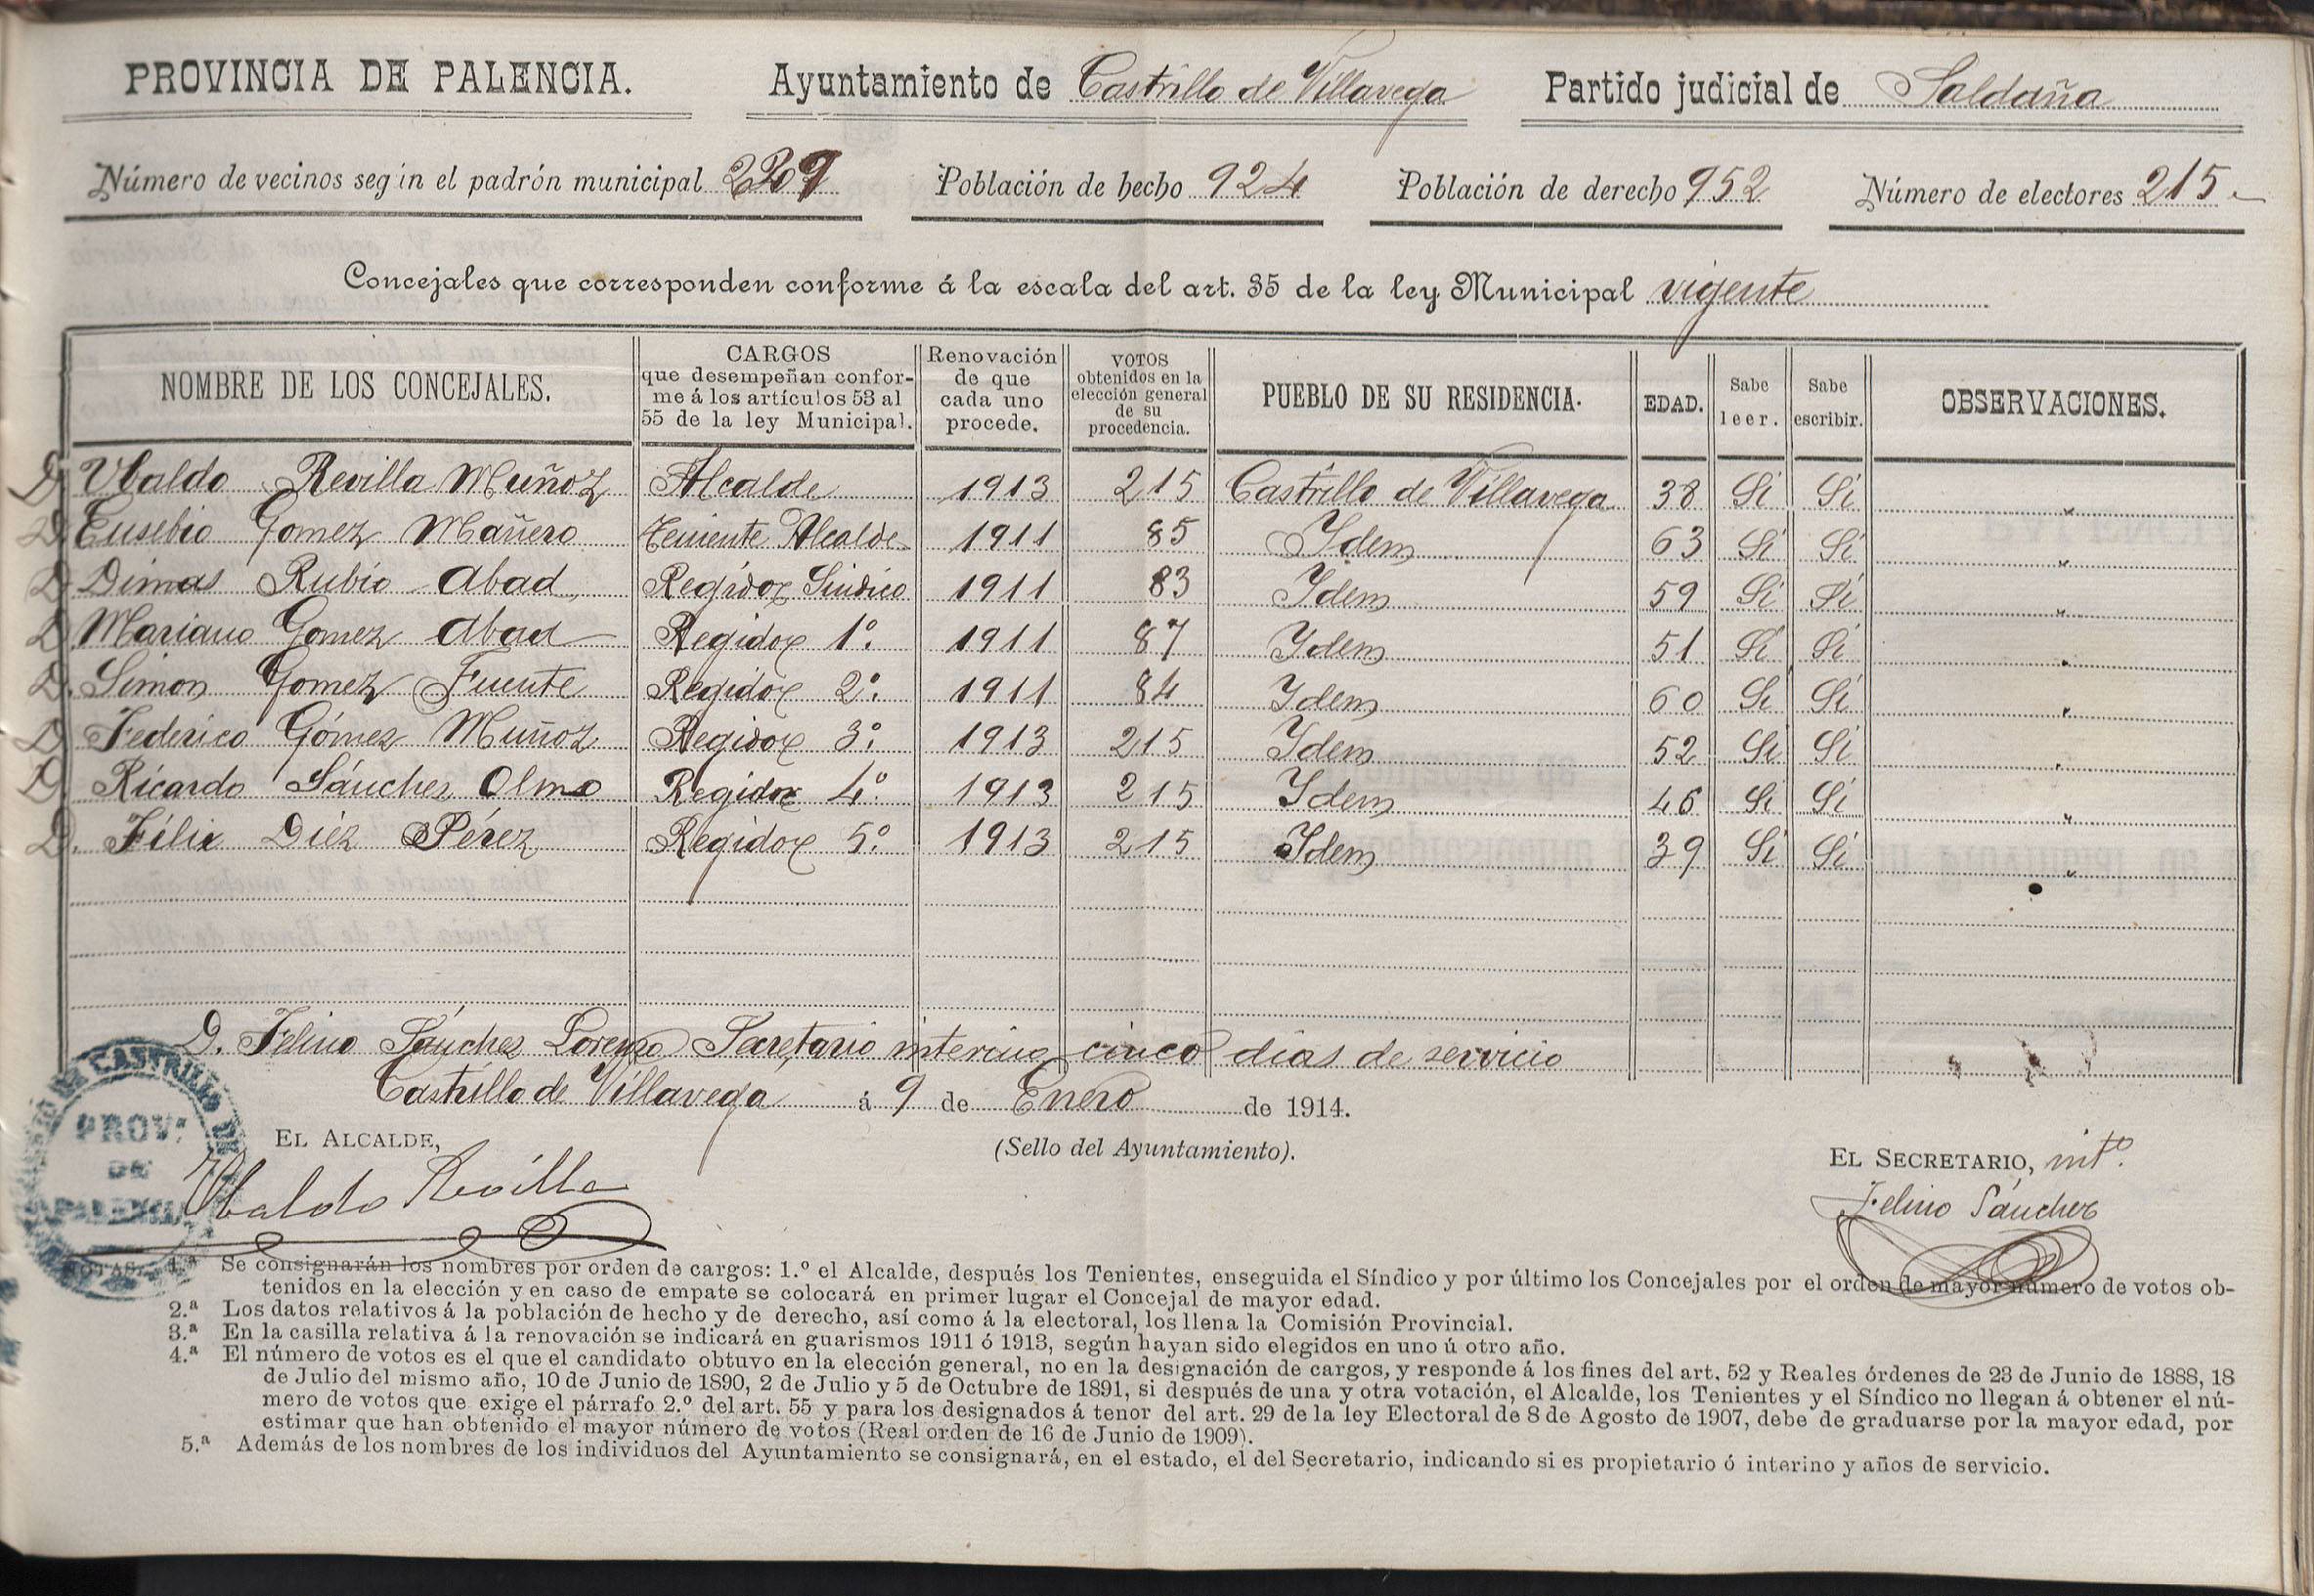 PROVINCIA DE PALENCIA. Ayuntamiento de Castrillo de Villavega Partido judicial de Saldaña
Número de vecinos según el padrón municipal Población de hecho 924 Población de derecho 952 Número de electores 215
Concejales que corresponden conforme á la escala del art. 35 de la ley Municipal vigente
NOMBRE DE LOS CONCEJALES. CARGOS que desempeñan conforme á los artículos 53 al 55 de la ley Municipal. Renovación de que cada uno procede. VOTOS obtenidos en la elección general de su procedencia. PUEBLO DE SU RESIDENCIA. EDAD. Sabe leer. Sabe escribir. OBSERVACIONES.
D. Ubaldo Revilla Muñoz Alcalde 1913 215 Castrillo de Villavega 38 Sí Sí "
D. Eusebio Gomez Mañero Teniente Alcalde 1911 85 Ydem 63 Sí Sí "
D. Dimas Rubio Abad Regidor Sindico 1911 83 Ydem 59 Sí Sí "
D. Mariano Gomez Abad Regidor 1º. 1911 87 Ydem 51 Sí Sí "
D. Simon Gomez Fuente Regidor 2º. 1911 84 Ydem 60 Sí Sí "
D. Federico Gómez Muñoz Regidor 3º. 1913 215 Ydem 52 Sí Sí "
D. Ricardo Sánchez Olmo Regidor 4º. 1913 215 Ydem 46 Sí Sí "
D. Félix Diéz Pérez Regidor 5º. 1913 215 Ydem 39 Sí Sí "
D. Felino Sánchez Lorenzo Secretario interino cinco días de servicio
Castrillo de Villavega á 9 de Enero de 1914.
EL ALCALDE, (Sello del Ayuntamiento). EL SECRETARIO, intº.
Ubaldo Revilla Felino Sánchez
CASTRILLO
PROV.
DE
PALENCIA
NOTAS. 1.ª Se consignarán los nombres por orden de cargos: 1.º el Alcalde, después los Tenientes, enseguida el Síndico y por último los Concejales por el orden de mayor número de votos ob-
tenidos en la elección y en caso de empate se colocará en primer lugar el Concejal de mayor edad.
2.ª Los datos relativos á la población de hecho y de derecho, así como á la electoral, los llena la Comisión Provincial.
3.ª En la casilla relativa á la renovación se indicará en guarismos 1911 ó 1913, según hayan sido elegidos en uno ú otro año.
4.ª El número de votos es el que el candidato obtuvo en la elección general, no en la designación de cargos, y responde á los fines del art. 52 y Reales órdenes de 23 de Junio de 1888, 18
de Julio del mismo año, 10 de Junio de 1890, 2 de Julio y 5 de Octubre de 1891, si después de una y otra votación, el Alcalde, los Tenientes y el Síndico no llegan á obtener el nú-
mero de votos que exige el párrafo 2.º del art. 55 y para los designados á tenor del art. 29 de la ley Electoral de 8 de Agosto de 1907, debe de graduarse por la mayor edad, por
estimar que han obtenido el mayor número de votos (Real orden de 16 de Junio de 1909).
5.ª Además de los nombres de los individuos del Ayuntamiento se consignará, en el estado, el del Secretario, indicando si es propietario ó interino y años de servicio.